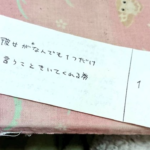 彼女がなんでも1つだけ
言うこときいてくれる券
1